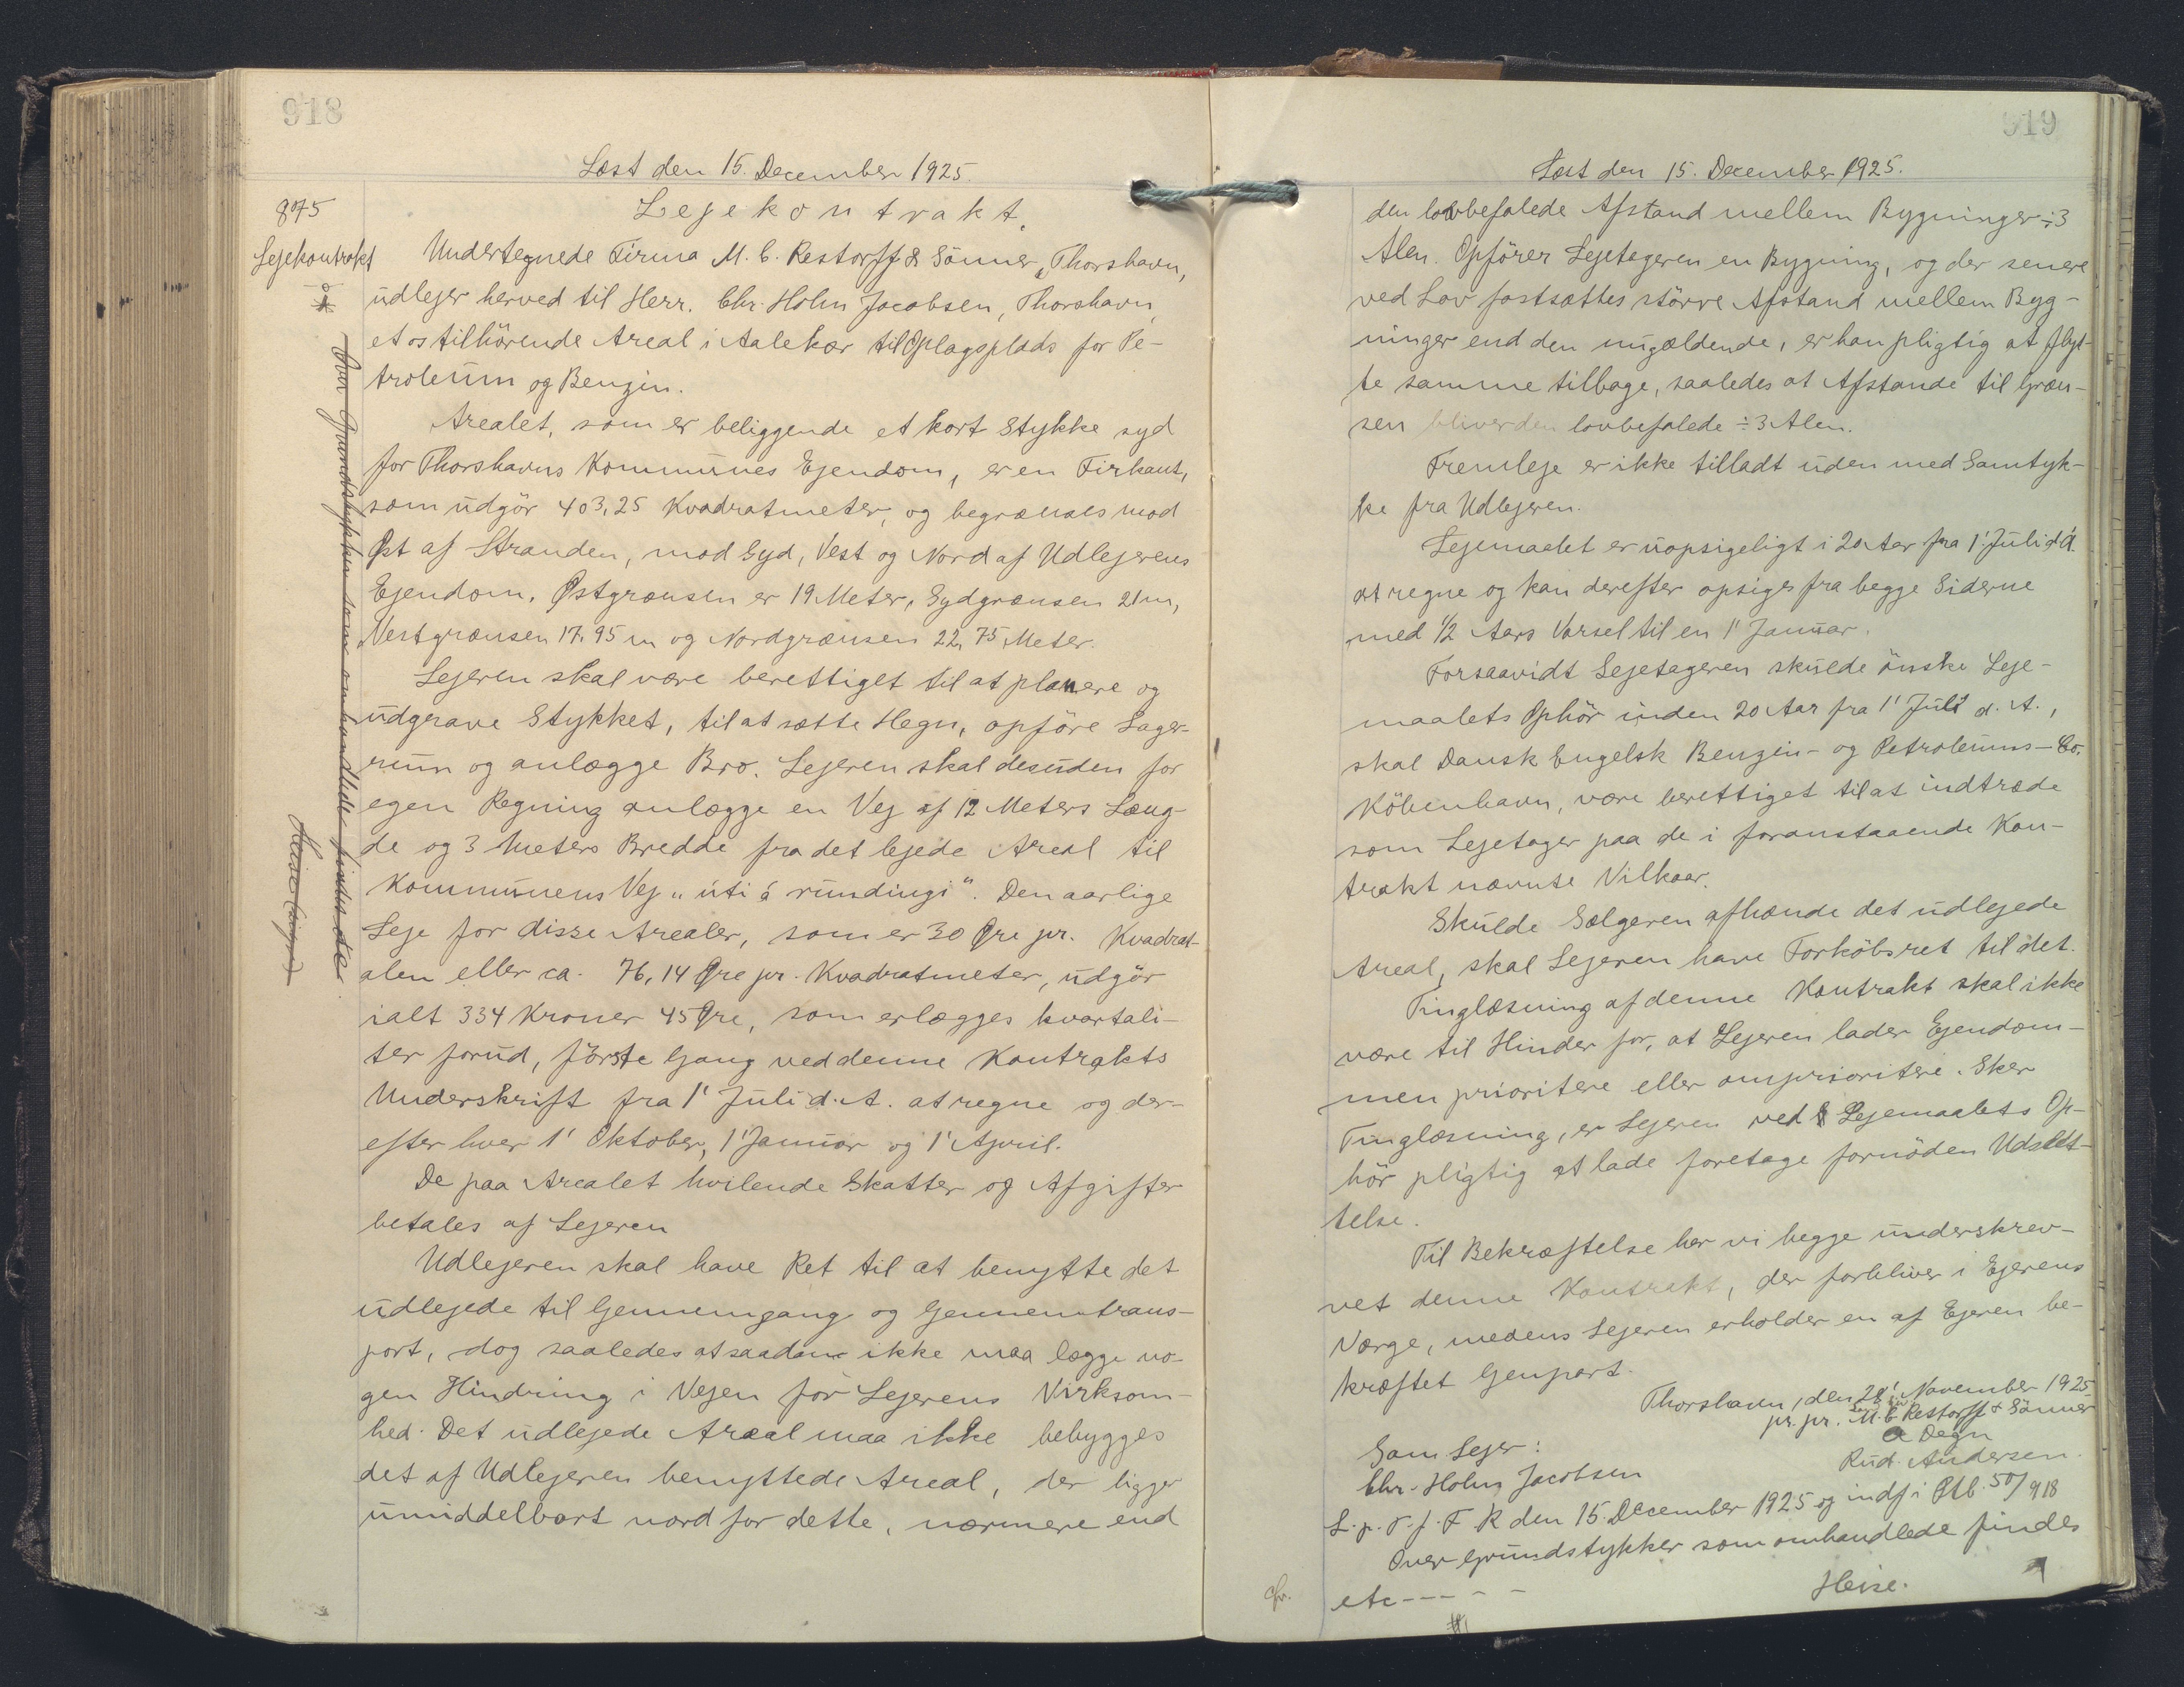 918
Læst den 15. December 1925.
875
Lejekontrakt
Lejekontrakt.
Undertegnede Firma M. C. Restorff & Sönner, Thorshavn,
udlejer herved til Herr. Chr. Holm Jacobsen, Thorshavn,
et os tilhörende Areal i Aalekær til Oplagsplads for Pe-
troleum og Benzin.
Arealet, som er beliggende et kort Stykke syd
for Thorshavns Kommunes Ejendom, er en Firkant,
som udgör 403,25 Kvadratmeter, og begrænses mod
Øst af Stranden, mod Syd, Vest og Nord af Udlejerens
Ejendom. Østgrænsen er 19 Meter, Sydgrænsen 21 m,
Vestgrænsen 17,95 m og Nordgrænsen 22,75 Meter.
Lejeren skal være berettiget til at planere og
udgrave Stykket, til at sætte Hegn, opföre Lager-
rum og anlægge Bro. Lejeren skal desuden for
egen Regning anlægge en Vej af 12 Meters Læng-
de og 3 Meters Bredde fra det lejede Areal til
Kommunens Vej „úti á rundingi“. Den aarlige
Leje for disse Arealer, som er 30 Øre pr. Kvadrat-
alen eller ca. 76,14 Øre pr. Kvadratmeter, udgör
ialt 334 Kroner 45 Øre, som erlægges kvartali-
ter forud, förste Gang ved denne Kontrakts
Underskrift fra 1' Juli d. A. at regne og der-
efter hver 1' Oktober, 1' Januar og 1' April.
De paa Arealet hvilende Skatter og Afgifter
betales af Lejeren
Udlejeren skal have Ret til at benytte det
udlejede til Gennemgang og Gennemtrans-
port, dog saaledes at saadant ikke maa lægge no-
gen Hindring i Vejen for Lejerens Virksom-
hed. Det udlejede Areal maa ikke bebygges
det af Udlejeren benyttede Areal, der ligger
umiddelbart nord for dette, nærmere end
Over Grundstykker som omhandlede findes ete
Heise
919
Læst den 15. December 1925.
den lovbefalede Afstand mellem Bygninger ÷ 3
Alen. Opförer Lejetageren en Bygning, og der senere
ved Lov fastsættes större Afstand mellem Byg-
ninger end den nugældende, er han pligtig at flyt-
te samme tilbage, saaledes at Afstande til Græn-
sen bliver den lovbefalede ÷ 3 Alen.
Fremleje er ikke tilladt uden med Samtyk-
ke fra Udlejeren.
Lejemaalet er uopsigeligt i 20 Aar fra 1' Juli d.A.
at regne og kan derefter opsiges fra begge Siderne
med 1/2 Aars Varsel til en 1' Januar.
Forsaavidt Lejetageren skulde önske Leje-
maalets Ophör inden 20 Aar fra 1' Juli d. A.,
skal Dansk Engelsk Benzin- og Petroleums-Co.
Köbenhavn, være berettiget til at indtræde
som Lejetager paa de i foranstaaende Kon-
trakt nævnte Vilkaar.
Skulde Sælgeren afhænde det udlejede
Areal, skal Lejeren have Forköbsret til det.
Tinglæsning af denne Kontrakt skal ikke
være til Hinder for, at Lejeren lader Ejendom-
men prioritere eller omprioritere. Sker
Tinglæsning, er Lejeren ved Lejemaalets Op-
hör pligtig at lade foretage fornöden Udslet-
telse.
Til Bekræftelse har vi begge underskrev-
vet denne Kontrakt, der forbliver i Ejerens
Værge, medens Lejeren erholder en af Ejeren be-
kræftet Genpart.
Thorshavn, den 28' November 1925
pr. pr. M. C. Restorff & Sönner
A Degn
Rud. Andersen.
Som Lejer:
Chr. Holm Jacobsen
L. p. T. f. F R den 15. December 1925 og indf i Ptb. 50/918
Over Grundstykker som omhandlede findes
etc - - - - -
Heise.
cfr.